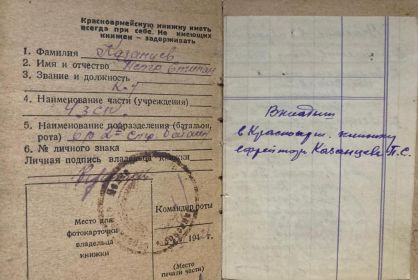 Красноармейскую книжку иметь
всегда при себе. Не имеющих
книжек — задерживать
1. Фамилия Казанцев
2. Имя и отчество Петр Степан
3. Звание и должность
К-Т
4. Наименование части (учреждения)
5. Наименование подразделения (батальон,
рота)
6. № личного знака
Личная подпись владельца книжки
Место для
фотокарточки
владельца
книжки
Командир роты
194 г.
(Место
печати части)
Вкладыш
в Красноарм. книжку
ефрейтор Казанцева П.С.